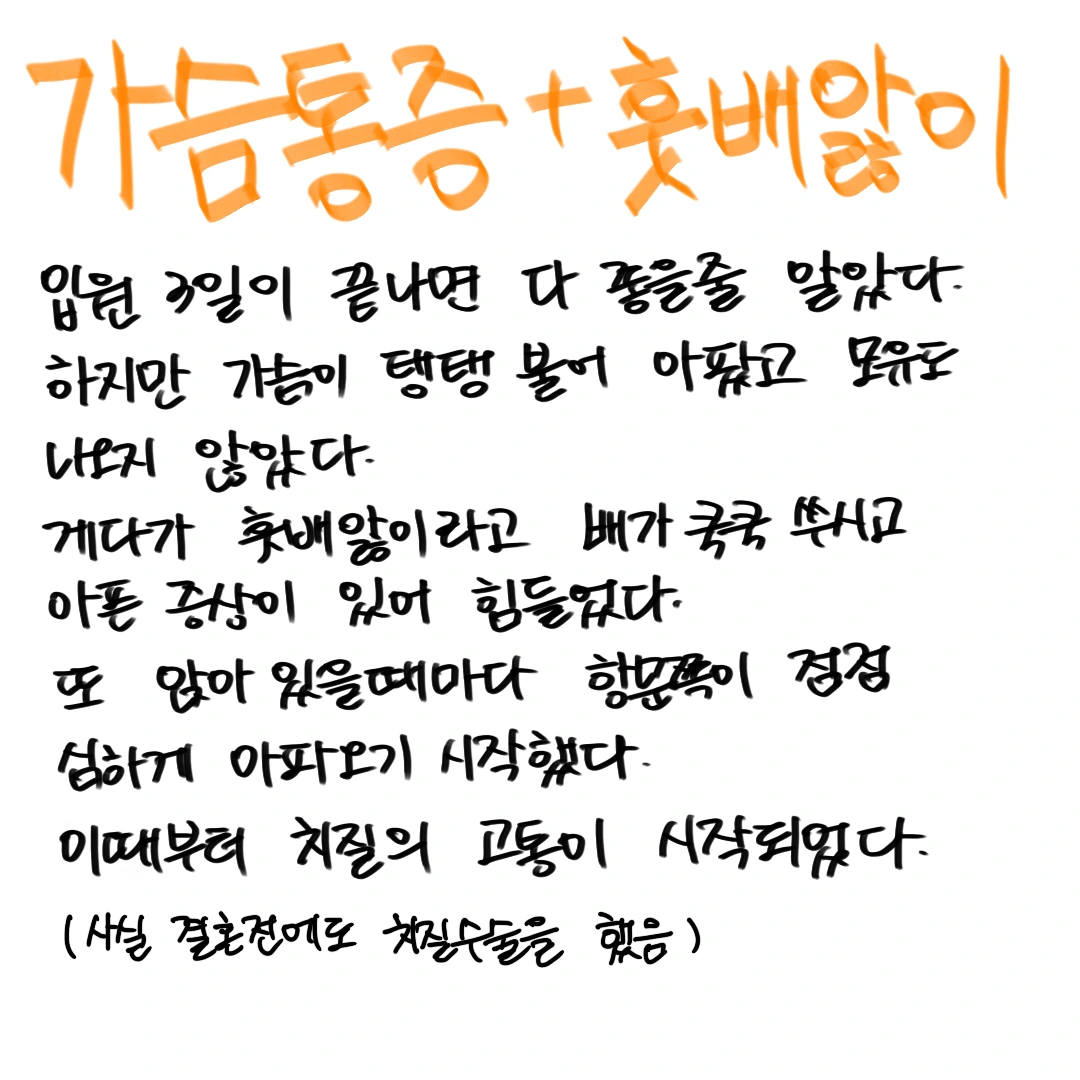 가슴통증 + 훗배앓이
입원 3일이 끝나면 다 좋을줄 말았다.
하지만 가슴이 탱탱 불어 아팠고 모유도
나오지 않았다.
게다가 훗배앓이라고 배가 쿡쿡 쑤시고
아픈 증상이 있어 힘들었다.
또 앉아 있을때마다 항문쪽이 점점
심하게 아파오기 시작했다.
이때부터 치질의 고통이 시작되었다.
(사실 결혼전에도 치질수술을 했음)